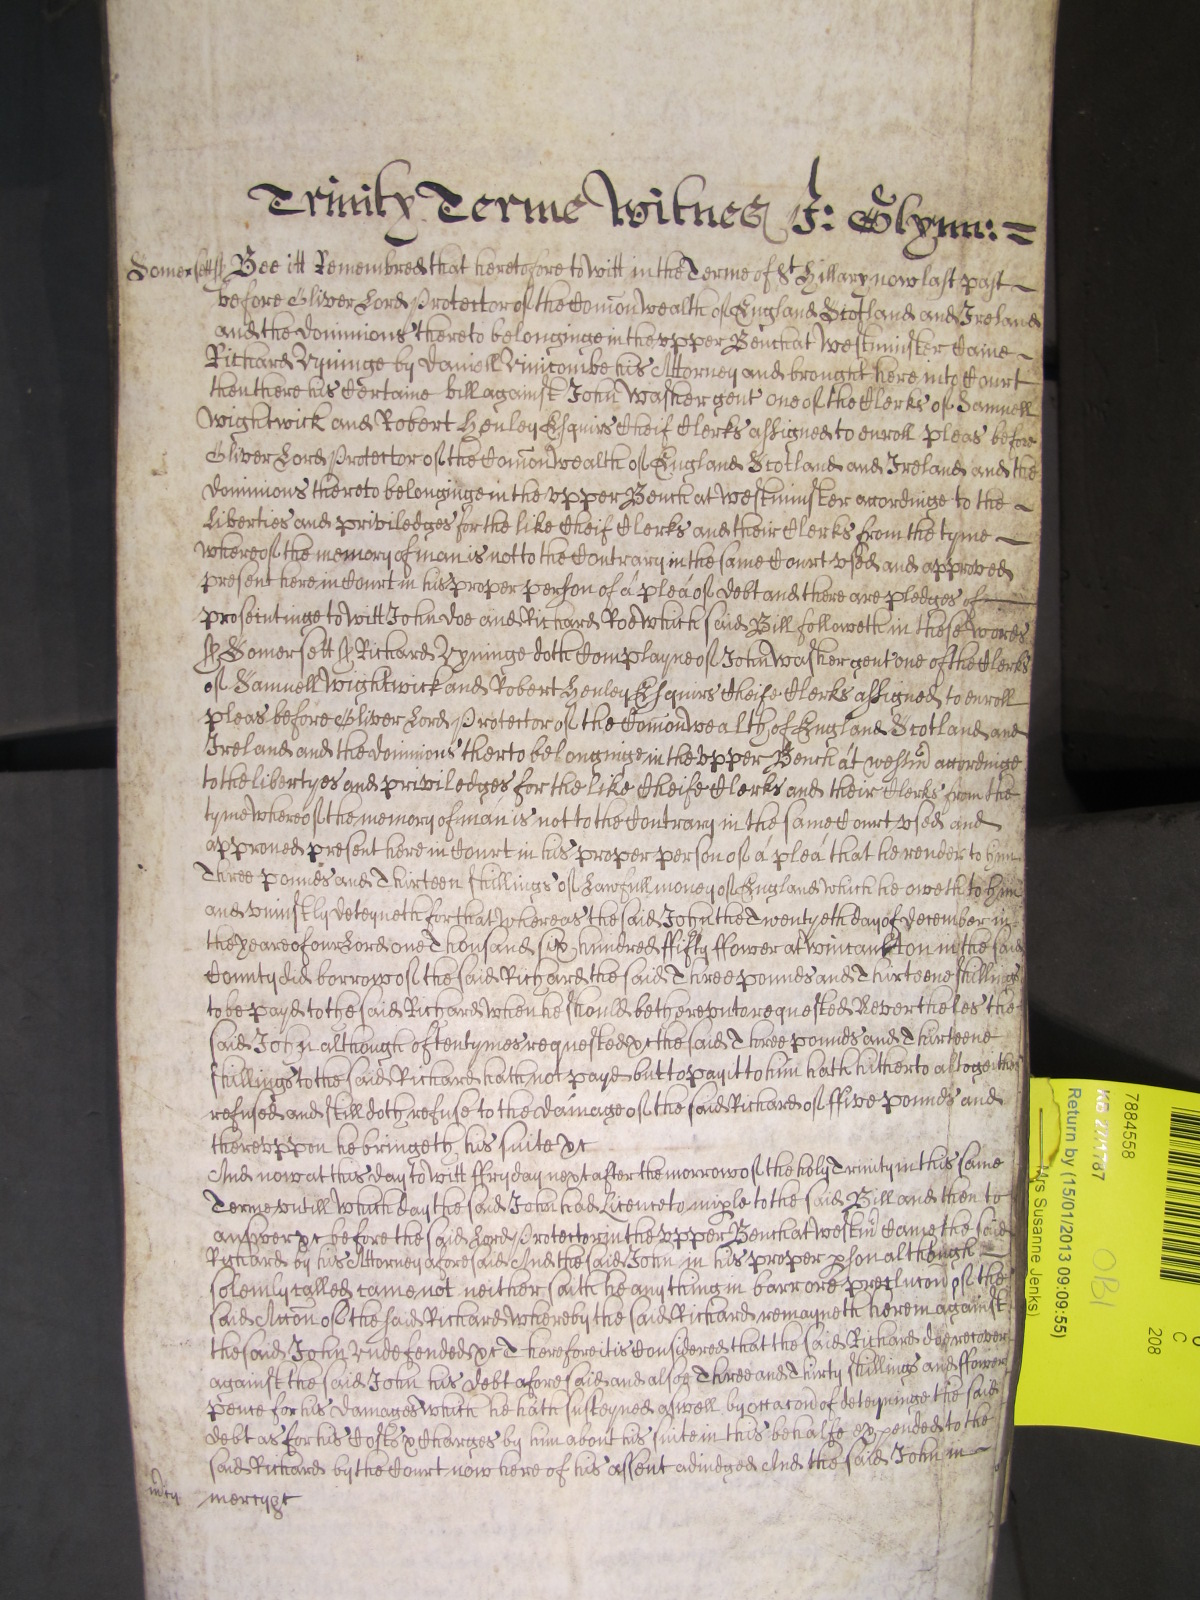 Trinity Terme Witnes J: Glynn:=
Somersett ss Bee itt Remembred that heretofore to witt in the Terme of St Hillary now last past
before Oliver Lord Protector of the Comonwealth of England Scotland and Ireland
and the dominions thereto belonginge in the vpper Bench at Westminster came
Richard Vyninge by Daniell Vinicombe his Attorney and brought here into Court
then there his Certaine bill against John Washer gent one of the Clerks of Samuell
Wightwick and Robert Henley Esquires Cheif Clerks assigned to enroll pleas before
Oliver Lord Protector of the Comonwealth of England Scotland and Ireland and the
dominions thereto belonginge in the vpper Bench at Westminster accordinge to the
Liberties and priviledges for the like Cheif Clerks and their Clerks from the tyme
whereof the memory of man is not to the Contrary in the same Court vsed and approved
present here in Court in his proper person of a plea of debt and there are pledges of
prosecutinge to witt John Doe and Richard Roe which said Bill followeth in these words
ss Somersett ss Richard Vyninge doth Complayne of John Washer gent one of the Clerks
of Samuell Wightwick and Robert Henley Esquirs Cheife Clerks assigned to enroll
pleas before Oliver Lord Protector of the Comonwealth of England Scotland and
Ireland and the dominions therto belonginge in the vpper Bench at Westmr accordinge
to the libertyes and priviledges for the like Cheife Clerks and their Clerks from the
tyme whereof the memory of man is not to the Contrary in the same Court vsed and
approued present here in Court in his proper person of a plea that he render to him
Three pounds and Thirteen shillings of Lawfull money of England which he oweth to him
and vniustly deteyneth for that Whereas the said John the Twentyeth day of December in
the yeare of our Lord one Thousand six hundred ffifty ffower at Wincanton in the said
County did borrow of the said Richard the said Three pounds and Thirteene shillings
to be payd to the said Richard when he should be therevnto requested Neverthelesse the
said John although oftentymes requested &c the said Three pounds and Thirteene
shillings to the said Richard hath not payd but to pay it to him hath hitherto altogeither
refused and still doth refuse to the damage of the said Richard of ffive pounds and
therevppon he bringeth his suite &c
And now at this day to witt ffryday next after the morrow of the holy Trinity in this same
Terme vntill which day the said John had Licence to imple to the said Bill and then to
answer &c before the said Lord Protector in the vpper Bench at Westmr came the said
Richard by his Attorney aforesaid And the said John in his proper pson although
solemly called came not neither saith he any thing in barr or preclucon of the
said Accon of the said Richard Whereby the said Richard remayneth herein against
the said John vndefended &c Therefore it is Considered that the said Richard doe recover
against the said John his debt aforesaid and alsoe Three and Thirty shillings and ffower
pence for his damages which he hath susteyned aswell by occacon of deteyninge the said
debt as for his Costs & charges by him about his suite in this behalfe expended to the
said Richard by the Court now here of his assent adiudged And the said John in
mercy &c
7884558
KB 27/1787
Return by (15/01/2013 09:09:55)
Mrs Susanne Jenks)
OBI
C
208